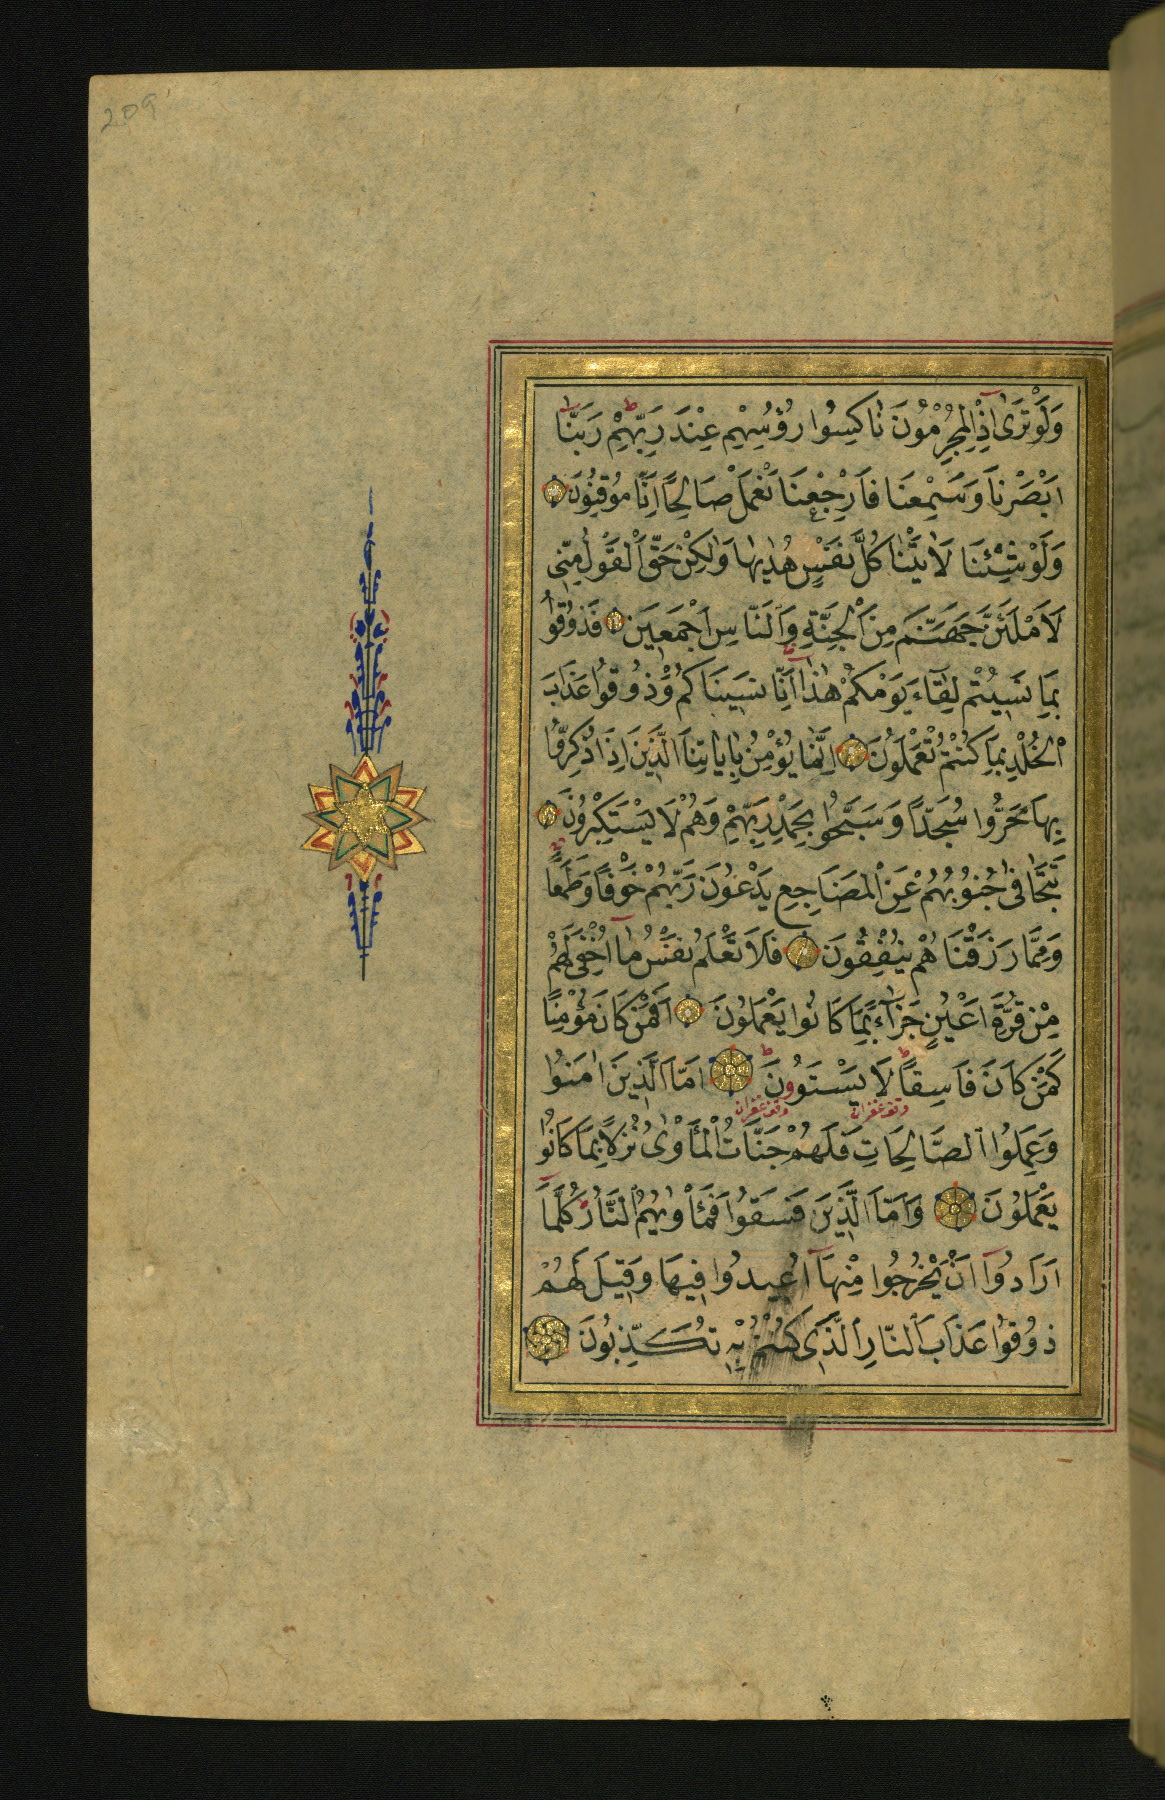 209
وَلَوْ تَرٰى اِذِ الْمُجْرِمُونَ نَاكِسُوا رُؤُسِهِمْ عِنْدَ رَبِّهِمْ رَبَّنَا
اَبْصَرْنَا وَسَمِعْنَا فَارْجِعْنَا نَعْمَلْ صَالِحًا اِنَّا مُوقِنُونَ
وَلَوْ شِئْنَا لَاٰتَيْنَا كُلَّ نَفْسٍ هُدٰيهَا وَلٰكِنْ حَقَّ الْقَوْلُ مِنِّى
لَاَمْلَئَنَّ جَهَنَّمَ مِنَ الْجِنَّةِ وَالنَّاسِ اَجْمَعِينَ فَذُوقُوا
بِمَا نَسِيتُمْ لِقَاءَ يَوْمِكُمْ هٰذَا اِنَّا نَسِينَاكُمْ وَذُوقُوا عَذَابَ
الْخُلْدِ بِمَا كُنْتُمْ تَعْمَلُونَ اِنَّمَا يُؤْمِنُ بِاٰيَاتِنَا الَّذِينَ اِذَا ذُكِّرُوا
بِهَا خَرُّوا سُجَّدًا وَسَبَّحُوا بِحَمْدِ رَبِّهِمْ وَهُمْ لَا يَسْتَكْبِرُونَ
تَتَجَافٰى جُنُوبُهُمْ عَنِ الْمَضَاجِعِ يَدْعُونَ رَبَّهُمْ خَوْفًا وَطَمَعًا
وَمِمَّا رَزَقْنَاهُمْ يُنْفِقُونَ فَلَا تَعْلَمُ نَفْسٌ مَا اُخْفِىَ لَهُمْ
مِنْ قُرَّةِ اَعْيُنٍ جَزَاءً بِمَا كَانُوا يَعْمَلُونَ اَفَمَنْ كَانَ مُؤْمِنًا
كَمَنْ كَانَ فَاسِقًا لَا يَسْتَوُونَ اَمَّا الَّذِينَ اٰمَنُوا
وقف غفران وقف غفران
وَعَمِلُوا الصَّالِحَاتِ فَلَهُمْ جَنَّاتُ الْمَأْوٰى نُزُلًا بِمَا كَانُوا
يَعْمَلُونَ وَاَمَّا الَّذِينَ فَسَقُوا فَمَأْوٰيهُمُ النَّارُ كُلَّمَا
اَرَادُوا اَنْ يَخْرُجُوا مِنْهَا اُعِيدُوا فِيهَا وَقِيلَ لَهُمْ
ذُوقُوا عَذَابَ النَّارِ الَّذِى كُنْتُمْ بِهِ تُكَذِّبُونَ